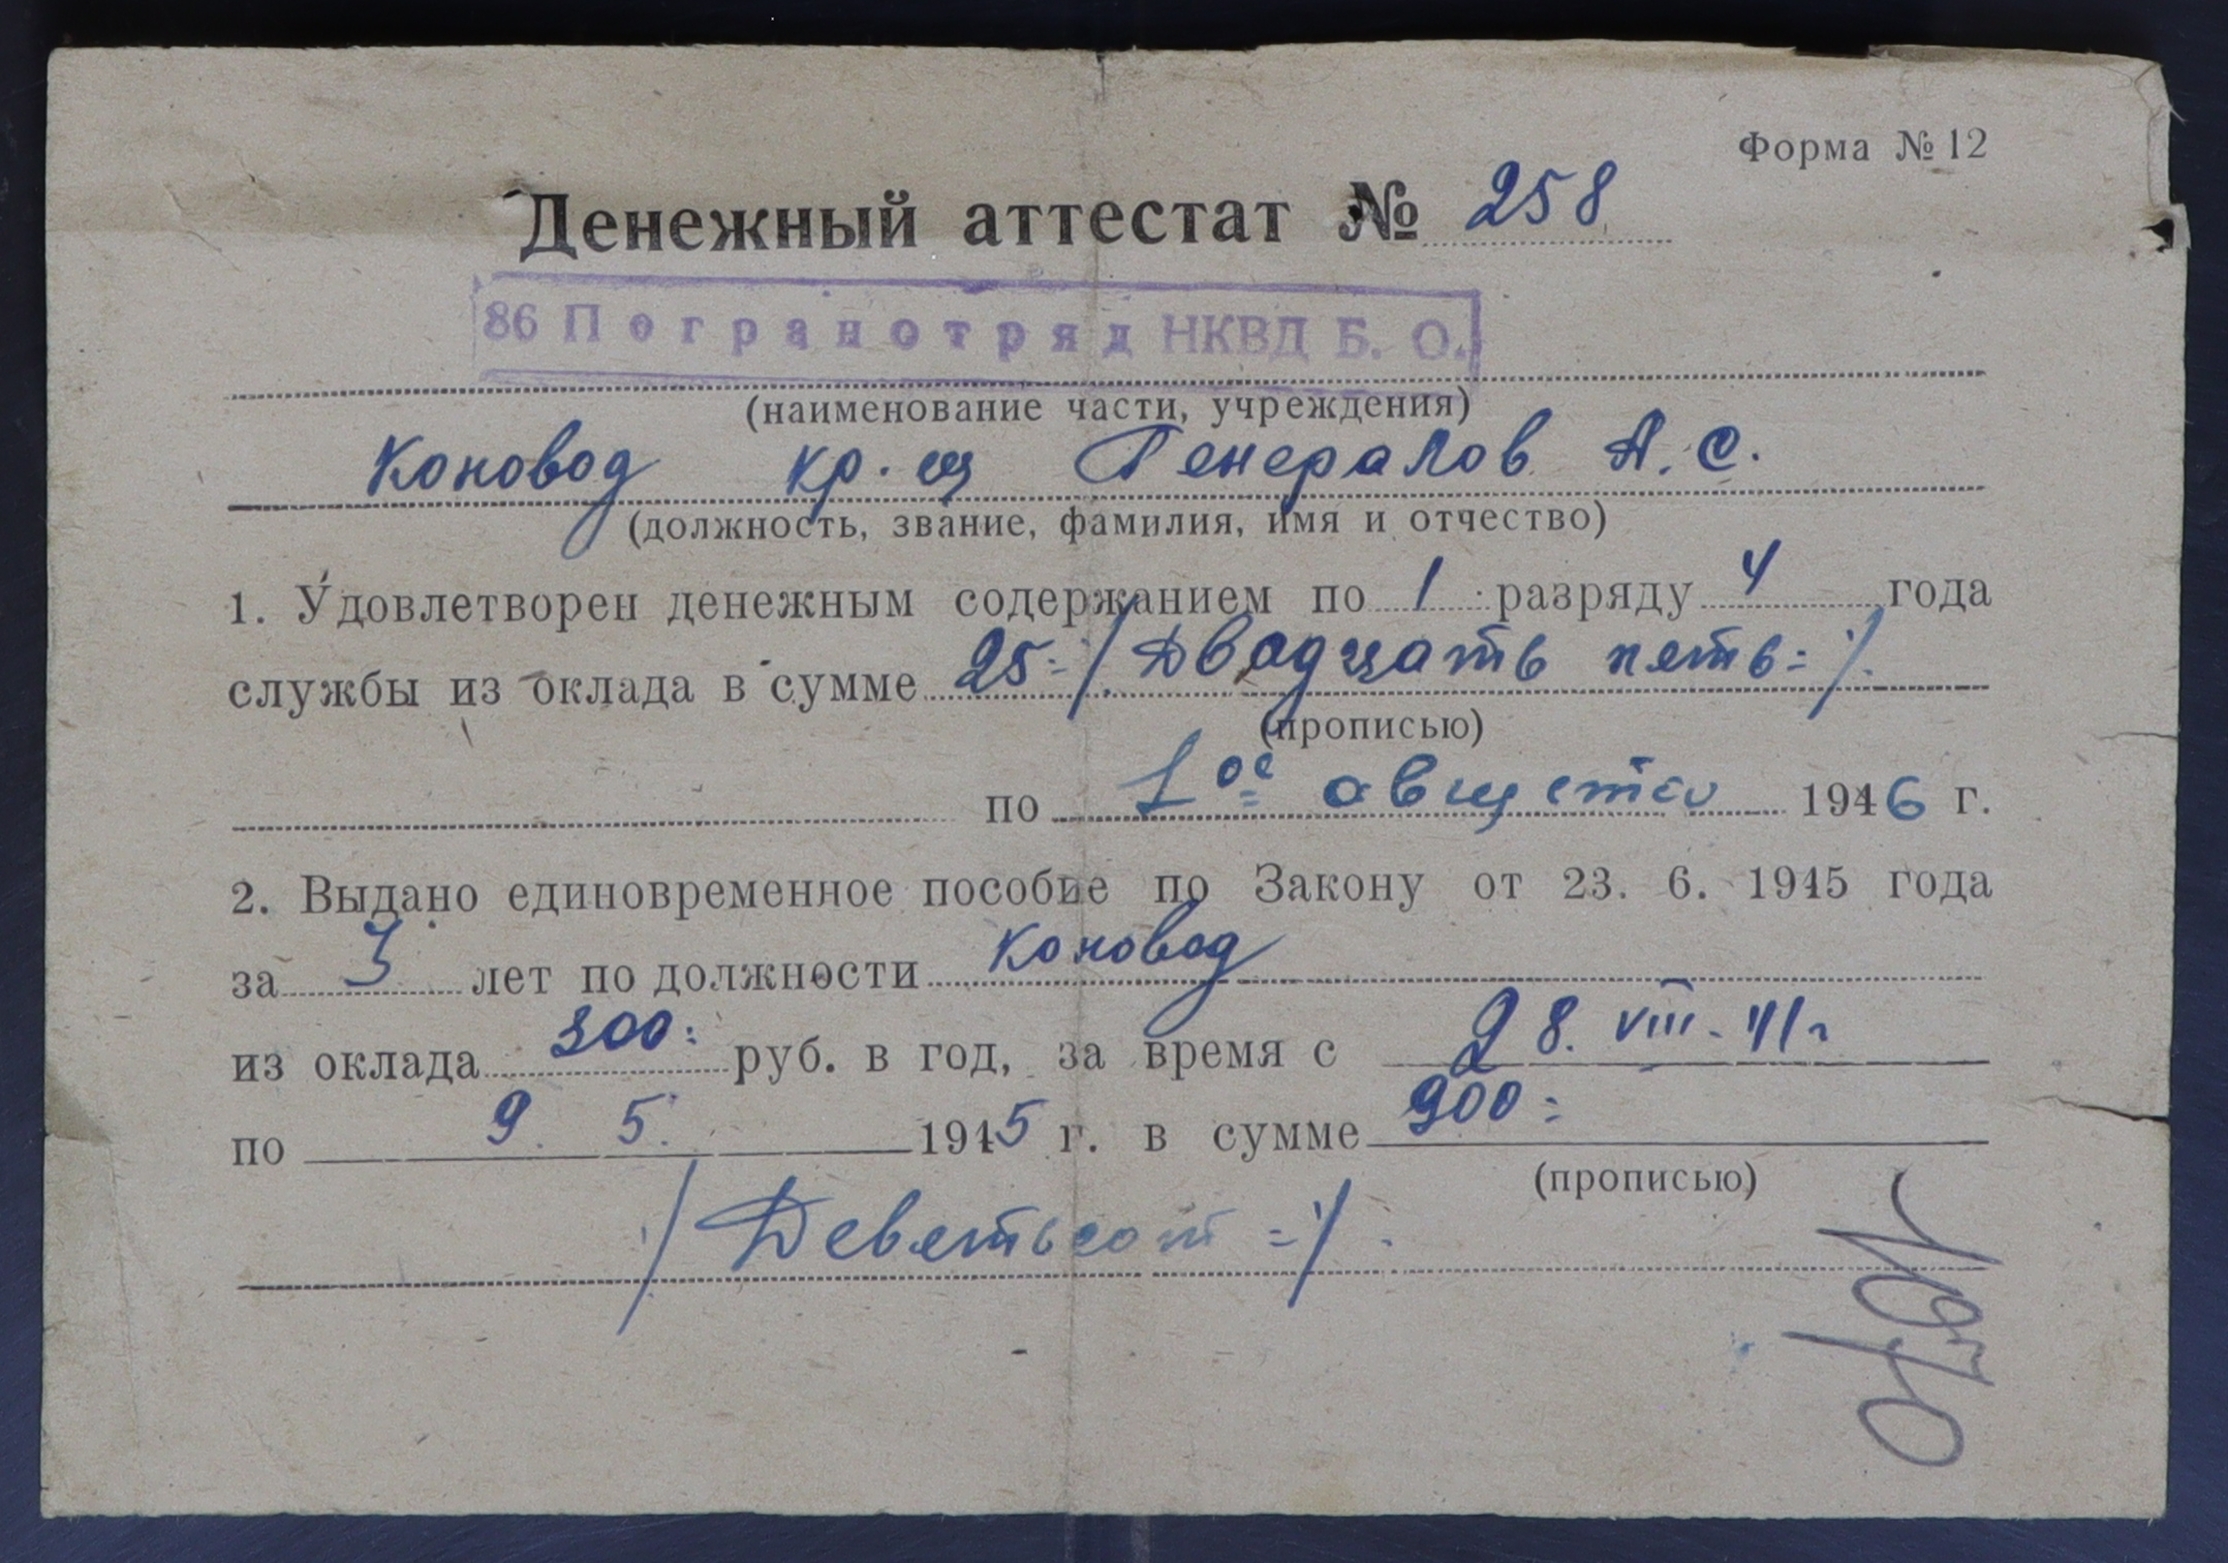 Форма № 12
Денежный аттестат № 258
86 Погранотряд НКВД Б. О.
(наименование части, учреждения)
Коновод кр-ец Генералов А. С.
(должность, звание, фамилия, имя и отчество)
1. Удовлетворен денежным содержанием по 1 разряду 4 года
службы из оклада в сумме 25= /Двадцать пять=/.
(прописью)
по 1ое августа 1946 г.
2. Выдано единовременное пособие по Закону от 23. 6. 1945 года
за 3 лет по должности коновод
из оклада 300= руб. в год, за время с 28. VIII - 41 г
по 9. 5. 1945 г. в сумме 900=
(прописью)
/Девятьсот=/.